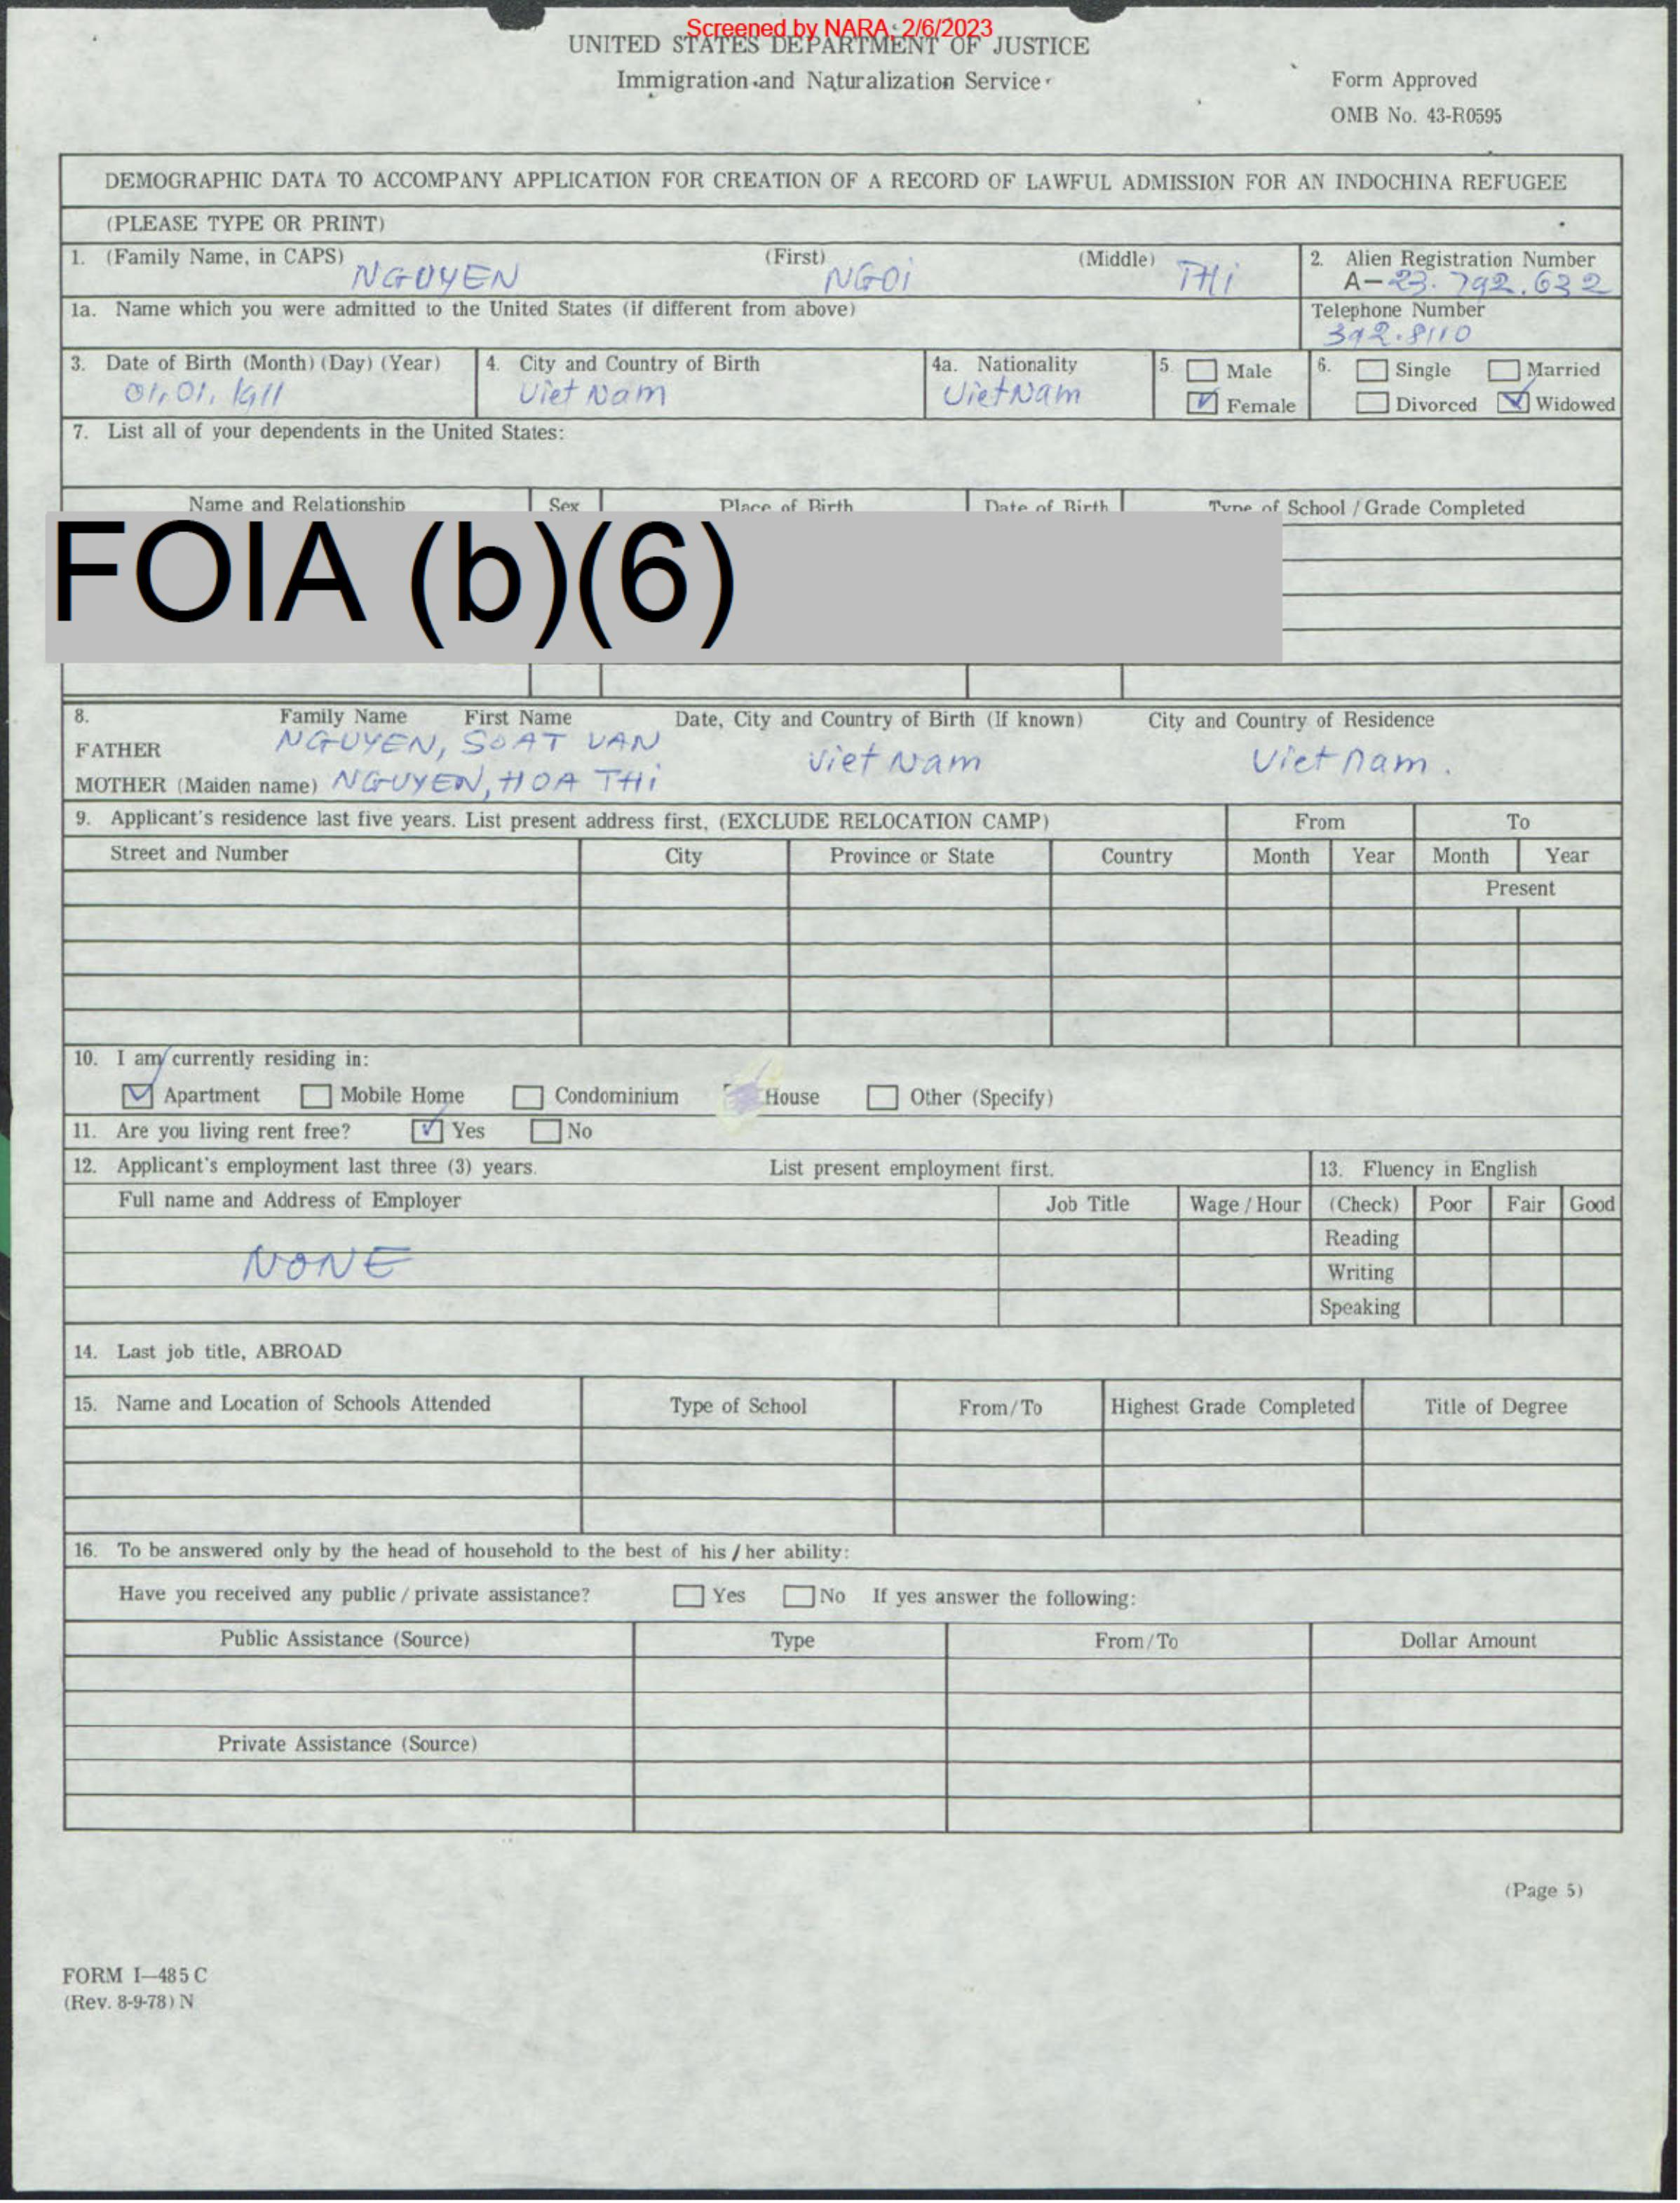 Screened by NARA, 2/6/2023
UNITED STATES DEPARTMENT OF JUSTICE
Immigration and Naturalization Service
Form Approved
OMB No. 43-R0595
DEMOGRAPHIC DATA TO ACCOMPANY APPLICATION FOR CREATION OF A RECORD OF LAWFUL ADMISSION FOR AN INDOCHINA REFUGEE
(PLEASE TYPE OR PRINT)
1. (Family Name, in CAPS) (First) (Middle) 2. Alien Registration Number
NGUYEN NGOI THI A-23.792.632
1a. Name which you were admitted to the United States (if different from above) Telephone Number
392.8110
3. Date of Birth (Month) (Day) (Year) 4. City and Country of Birth 4a. Nationality 5. Male 6. Single Married
01, 01, 1911 Viet Nam VietNam Female Divorced Widowed
7. List all of your dependents in the United States:
Name and Relationship Sex Place of Birth Date of Birth Type of School / Grade Completed
FOIA (b)(6)
8. Family Name First Name Date, City and Country of Birth (If known) City and Country of Residence
FATHER NGUYEN, SOAT VAN Viet Nam Viet Nam.
MOTHER (Maiden name) NGUYEN, HOA THI
9. Applicant's residence last five years. List present address first, (EXCLUDE RELOCATION CAMP) From To
Street and Number City Province or State Country Month Year Month Year
Present
10. I am currently residing in:
Apartment Mobile Home Condominium House Other (Specify)
11. Are you living rent free? Yes No
12. Applicant's employment last three (3) years. List present employment first. 13. Fluency in English
Full name and Address of Employer Job Title Wage / Hour (Check) Poor Fair Good
Reading
NONE Writing
Speaking
14. Last job title, ABROAD
15. Name and Location of Schools Attended Type of School From/To Highest Grade Completed Title of Degree
16. To be answered only by the head of household to the best of his / her ability:
Have you received any public / private assistance? Yes No If yes answer the following:
Public Assistance (Source) Type From/To Dollar Amount
Private Assistance (Source)
(Page 5)
FORM I-485 C
(Rev. 8-9-78) N